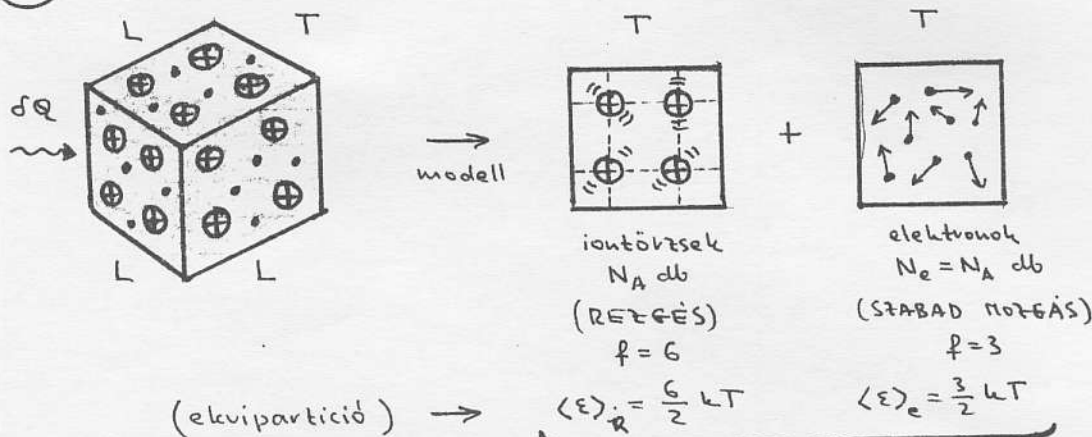 L T
δQ
L L
modell
T
+
T
iontörzsek
N_A db
(REZGÉS)
f = 6
elektronok
N_e = N_A db
(SZABAD MOZGÁS)
f = 3
(ekvipartíció) → ⟨ε⟩_R = 6/2 kT ⟨ε⟩_e = 3/2 kT